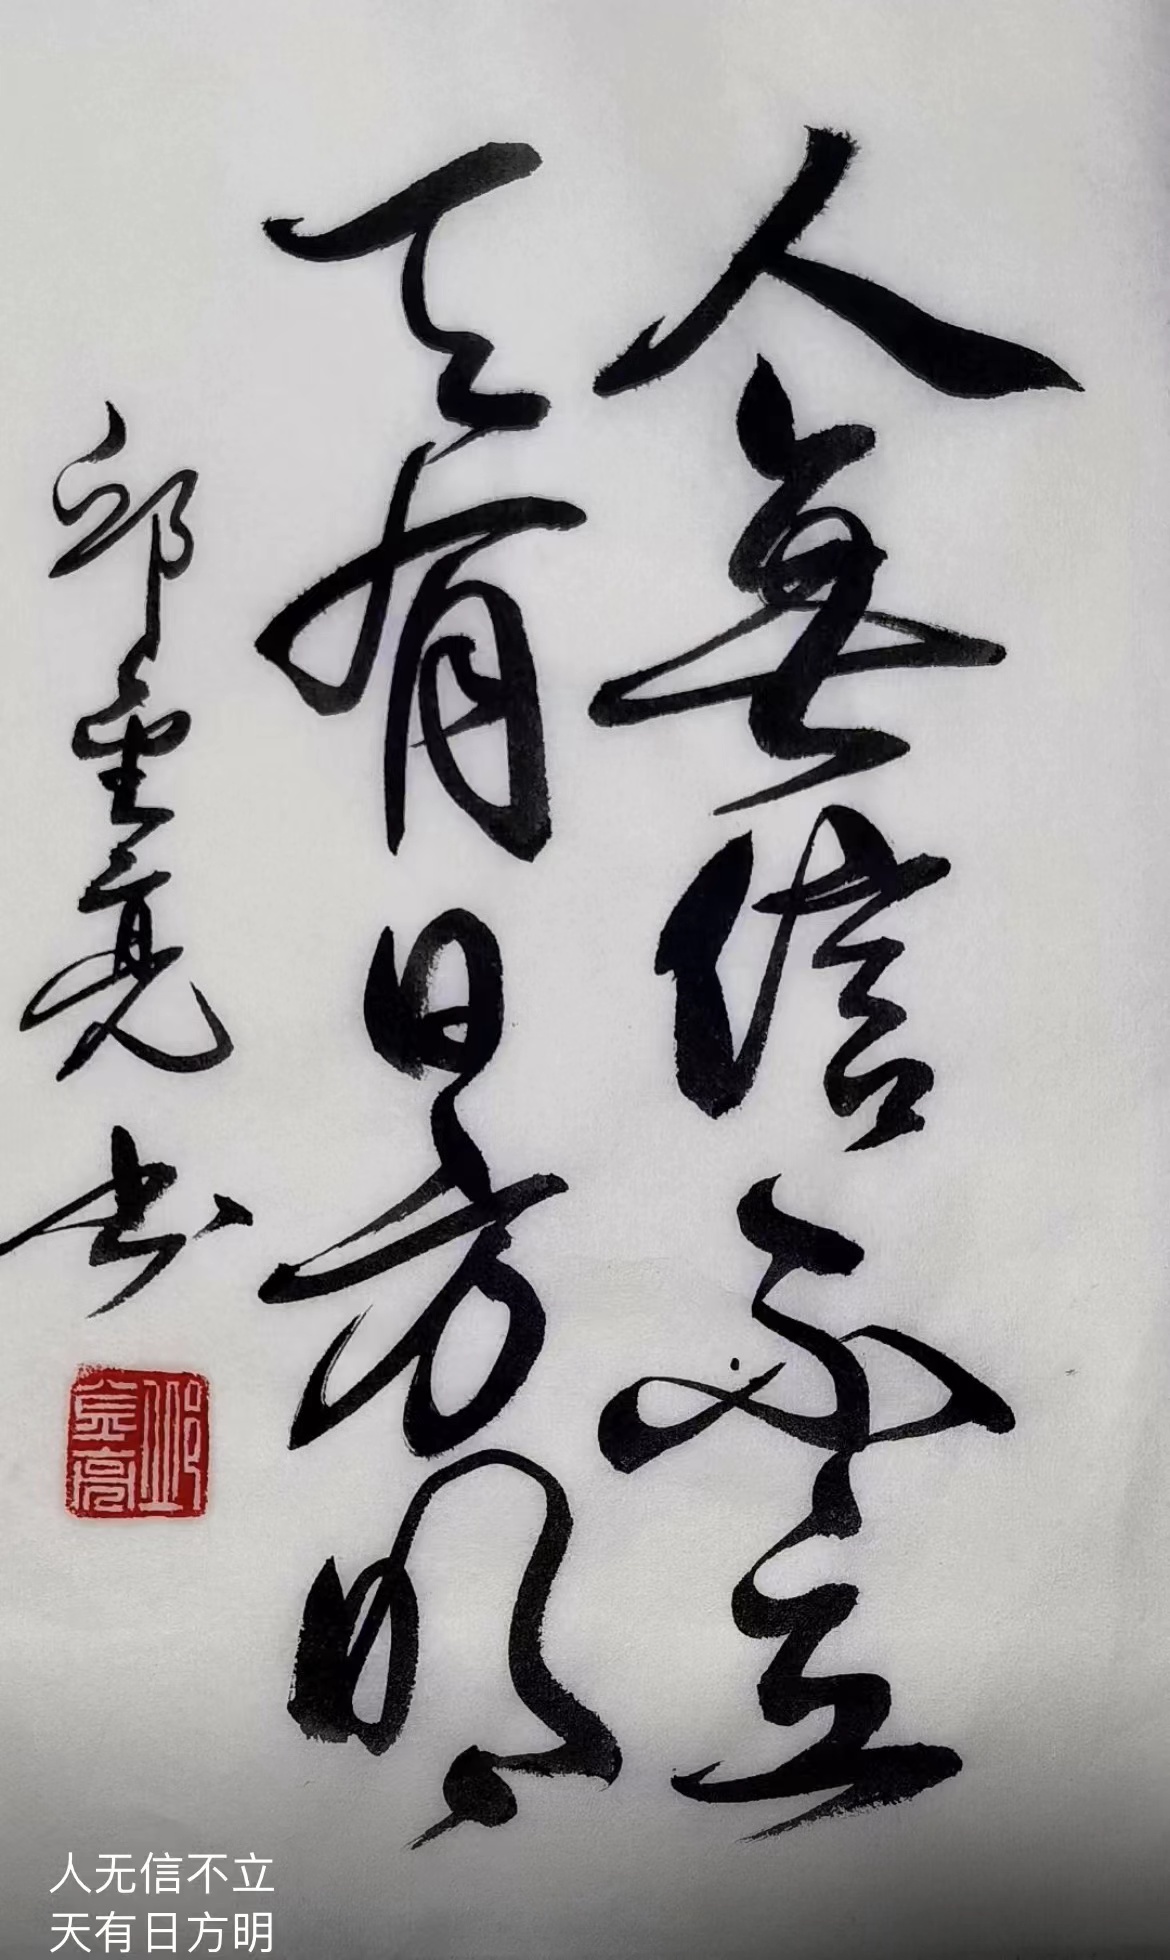 人無信不立
天有日方明
邱亮书
人无信不立
天有日方明